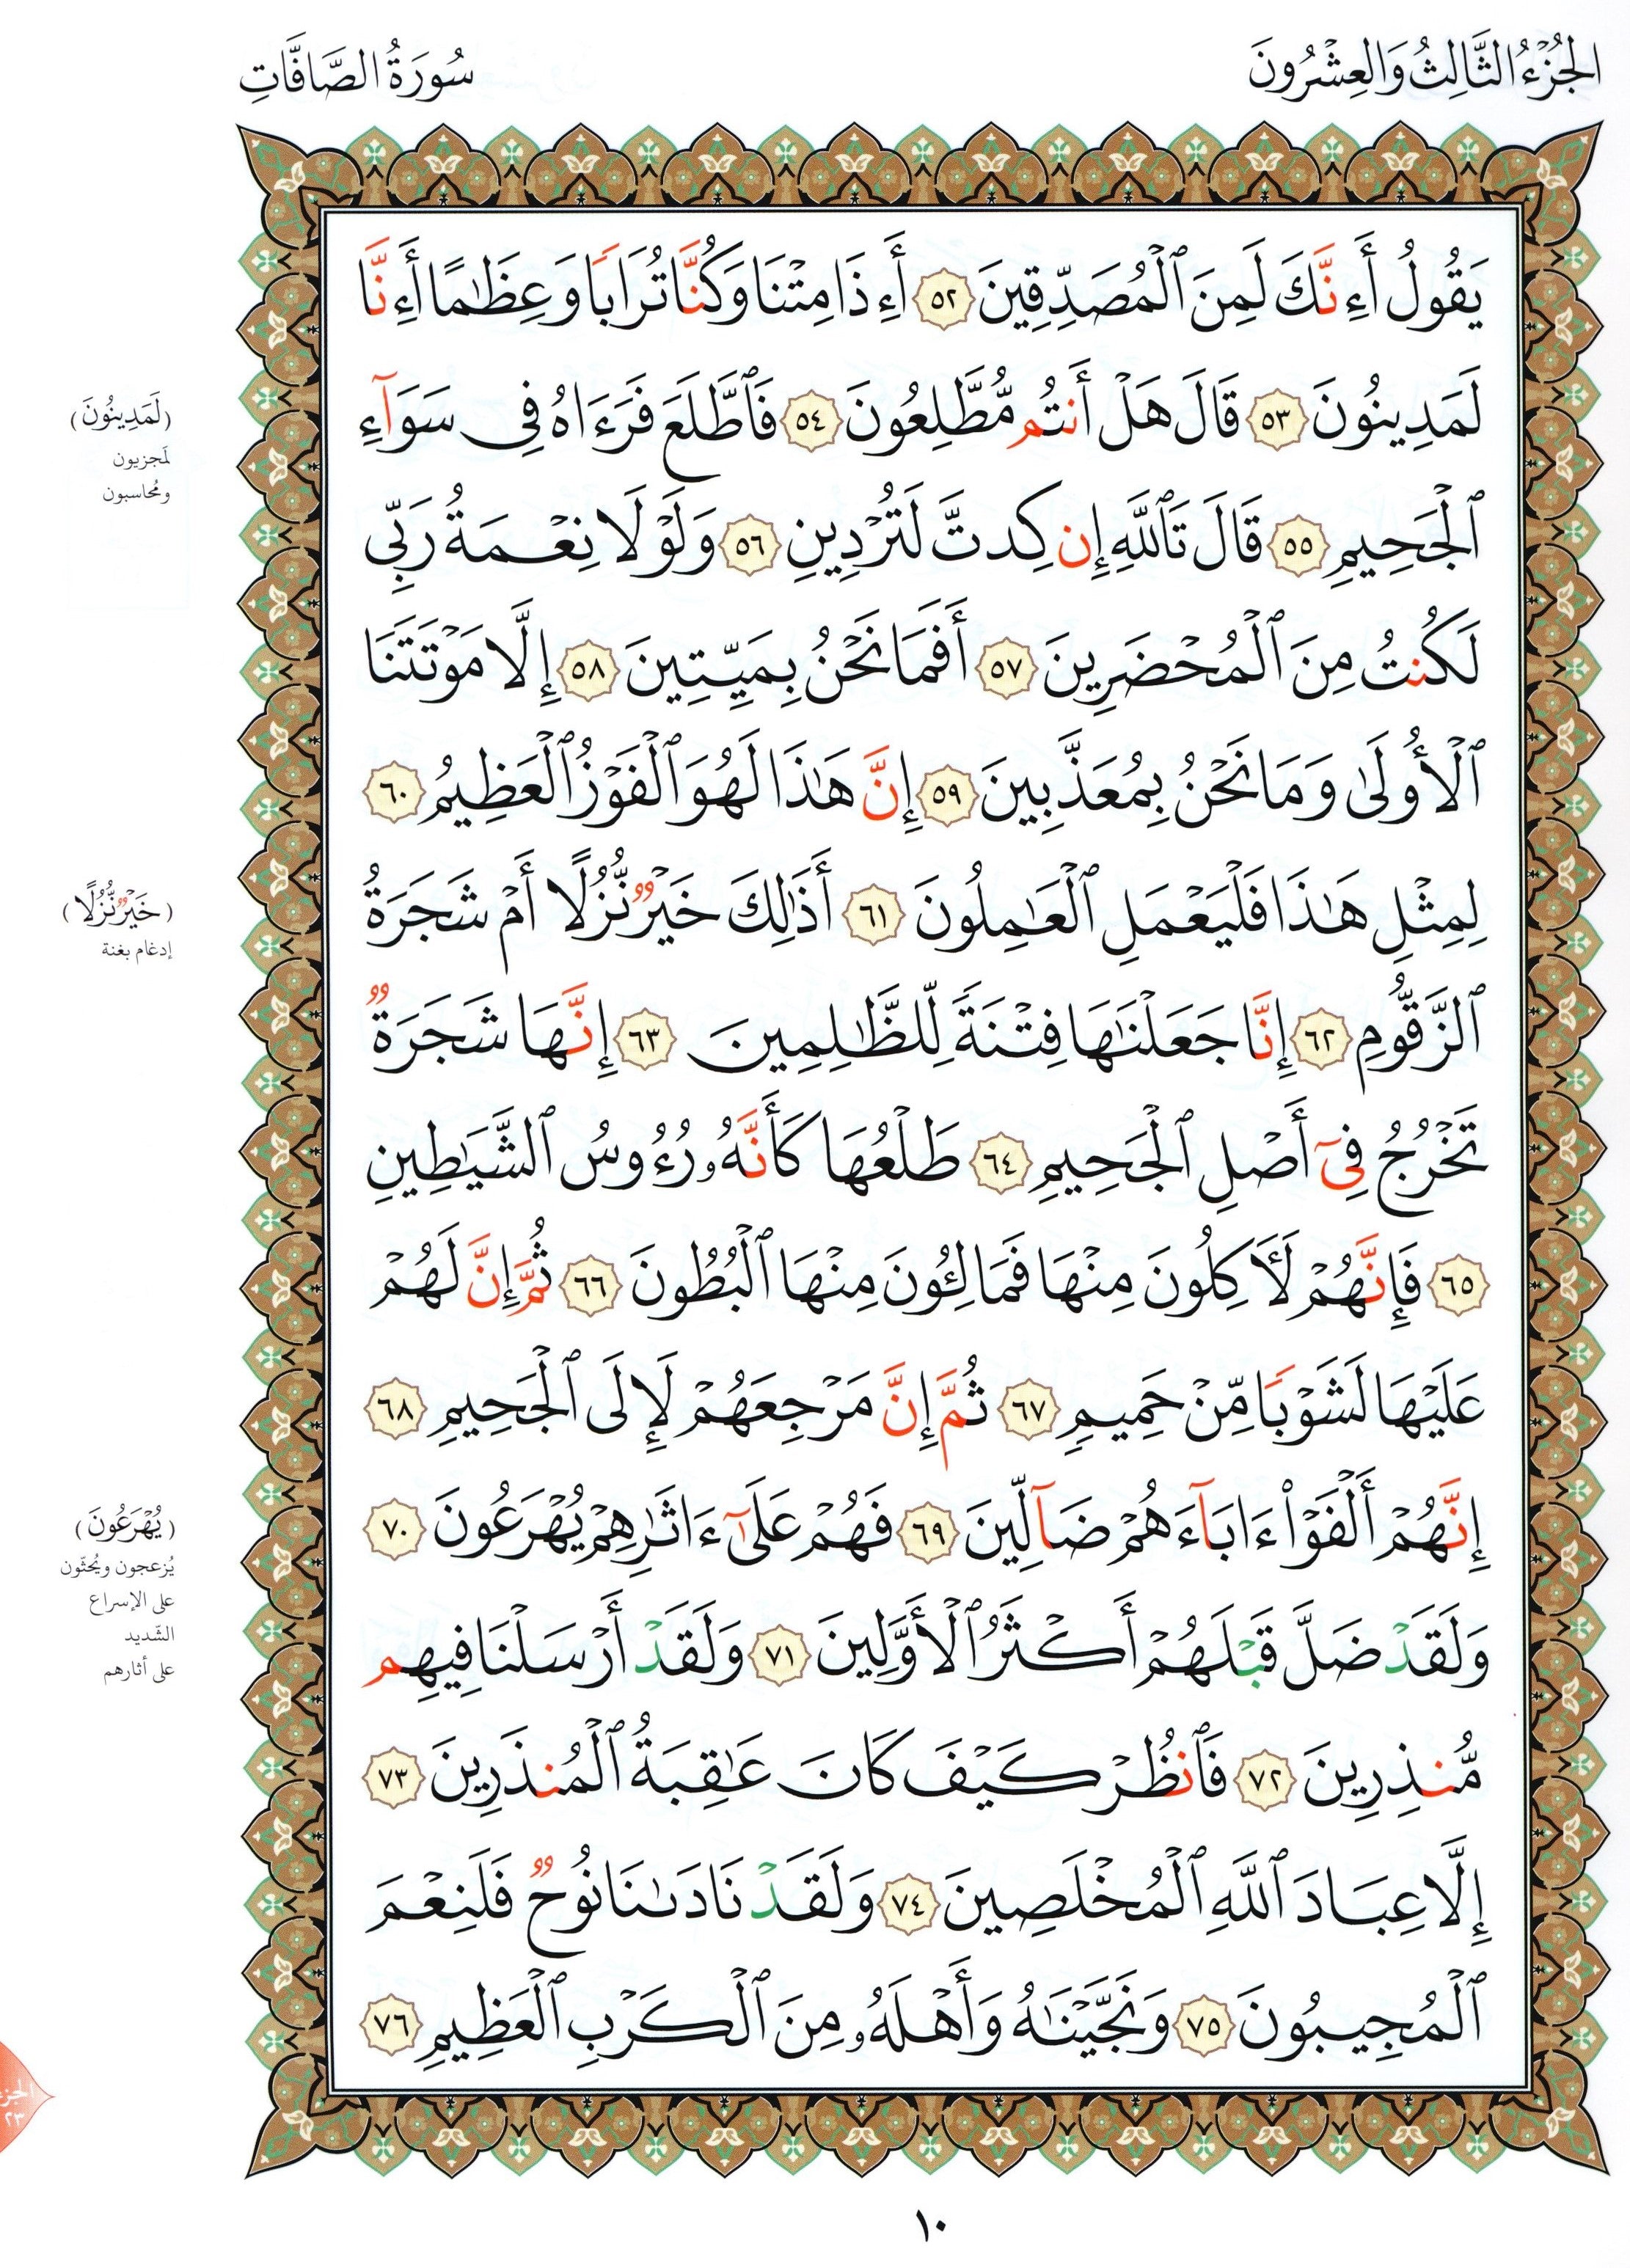 الجُزْءُ الثَّالِثُ وَالعِشْرُونَ
سُورَةُ الصَّافَّاتِ
يَقُولُ أَءِنَّكَ لَمِنَ ٱلْمُصَدِّقِينَ ٥٢ أَءِذَا مِتْنَا وَكُنَّا تُرَابًا وَعِظَٰمًا أَءِنَّا
لَمَدِينُونَ ٥٣ قَالَ هَلْ أَنتُم مُّطَّلِعُونَ ٥٤ فَٱطَّلَعَ فَرَءَاهُ فِى سَوَآءِ
ٱلْجَحِيمِ ٥٥ قَالَ تَٱللَّهِ إِن كِدتَّ لَتُرْدِينِ ٥٦ وَلَوْلَا نِعْمَةُ رَبِّى
لَكُنتُ مِنَ ٱلْمُحْضَرِينَ ٥٧ أَفَمَا نَحْنُ بِمَيِّتِينَ ٥٨ إِلَّا مَوْتَتَنَا
ٱلْأُولَىٰ وَمَا نَحْنُ بِمُعَذَّبِينَ ٥٩ إِنَّ هَٰذَا لَهُوَ ٱلْفَوْزُ ٱلْعَظِيمُ ٦٠
لِمِثْلِ هَٰذَا فَلْيَعْمَلِ ٱلْعَٰمِلُونَ ٦١ أَذَٰلِكَ خَيْرٌ نُّزُلًا أَمْ شَجَرَةُ
ٱلزَّقُّومِ ٦٢ إِنَّا جَعَلْنَٰهَا فِتْنَةً لِّلظَّٰلِمِينَ ٦٣ إِنَّهَا شَجَرَةٌ
تَخْرُجُ فِىٓ أَصْلِ ٱلْجَحِيمِ ٦٤ طَلْعُهَا كَأَنَّهُۥ رُءُوسُ ٱلشَّيَٰطِينِ
٦٥ فَإِنَّهُمْ لَءَاكِلُونَ مِنْهَا فَمَالِـُٔونَ مِنْهَا ٱلْبُطُونَ ٦٦ ثُمَّ إِنَّ لَهُمْ
عَلَيْهَا لَشَوْبًا مِّنْ حَمِيمٍ ٦٧ ثُمَّ إِنَّ مَرْجِعَهُمْ لَإِلَى ٱلْجَحِيمِ ٦٨
إِنَّهُمْ أَلْفَوْا۟ ءَابَآءَهُمْ ضَآلِّينَ ٦٩ فَهُمْ عَلَىٰٓ ءَاثَٰرِهِمْ يُهْرَعُونَ ٧٠
وَلَقَدْ ضَلَّ قَبْلَهُمْ أَكْثَرُ ٱلْأَوَّلِينَ ٧١ وَلَقَدْ أَرْسَلْنَا فِيهِم
مُّنذِرِينَ ٧٢ فَٱنظُرْ كَيْفَ كَانَ عَٰقِبَةُ ٱلْمُنذَرِينَ ٧٣
إِلَّا عِبَادَ ٱللَّهِ ٱلْمُخْلَصِينَ ٧٤ وَلَقَدْ نَادَىٰنَا نُوحٌ فَلَنِعْمَ
ٱلْمُجِيبُونَ ٧٥ وَنَجَّيْنَٰهُ وَأَهْلَهُۥ مِنَ ٱلْكَرْبِ ٱلْعَظِيمِ ٧٦
(لَمَدِينُونَ)
لَمجزيون
ومُحاسبون
(خَيْرٌ نُّزُلًا)
إدغام بغنة
(يُهْرَعُونَ)
يُزعجون ويُحثّون
على الإسراع
الشّديد
على أثارهم
الجزء
٢٣
١٠